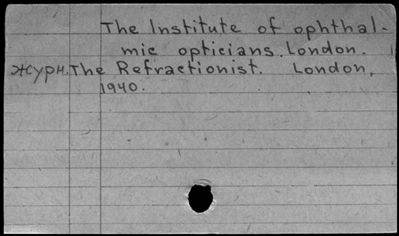 The Institute of ophthal-
mic opticians. London.
Журн. The Refractionist. London,
1940.